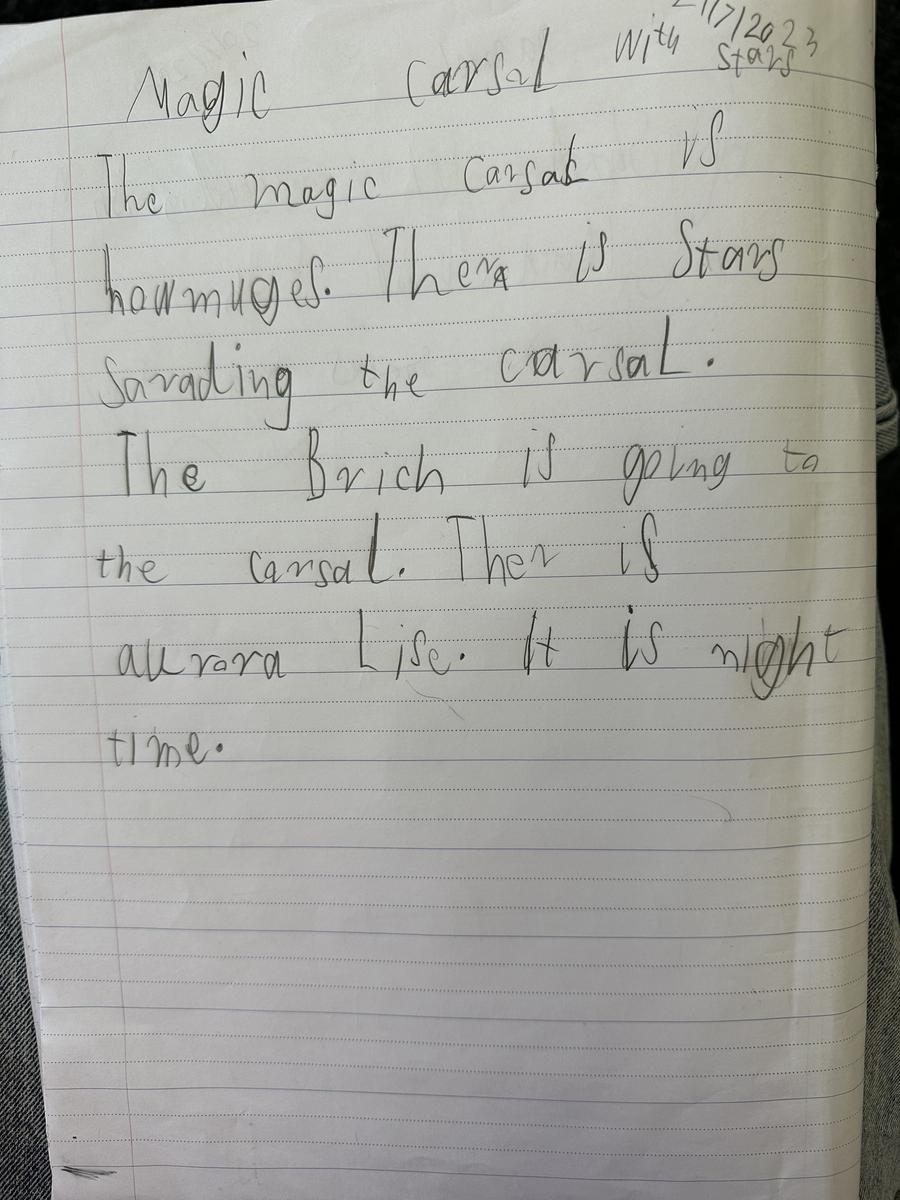 21/7/2023
Magic carsal with stars
The magic carsal is
howmuges. Thera is Stars
Sarading the carsal.
The Brich is going to
the carsal. Ther is
aurora Lise. It is night
time.